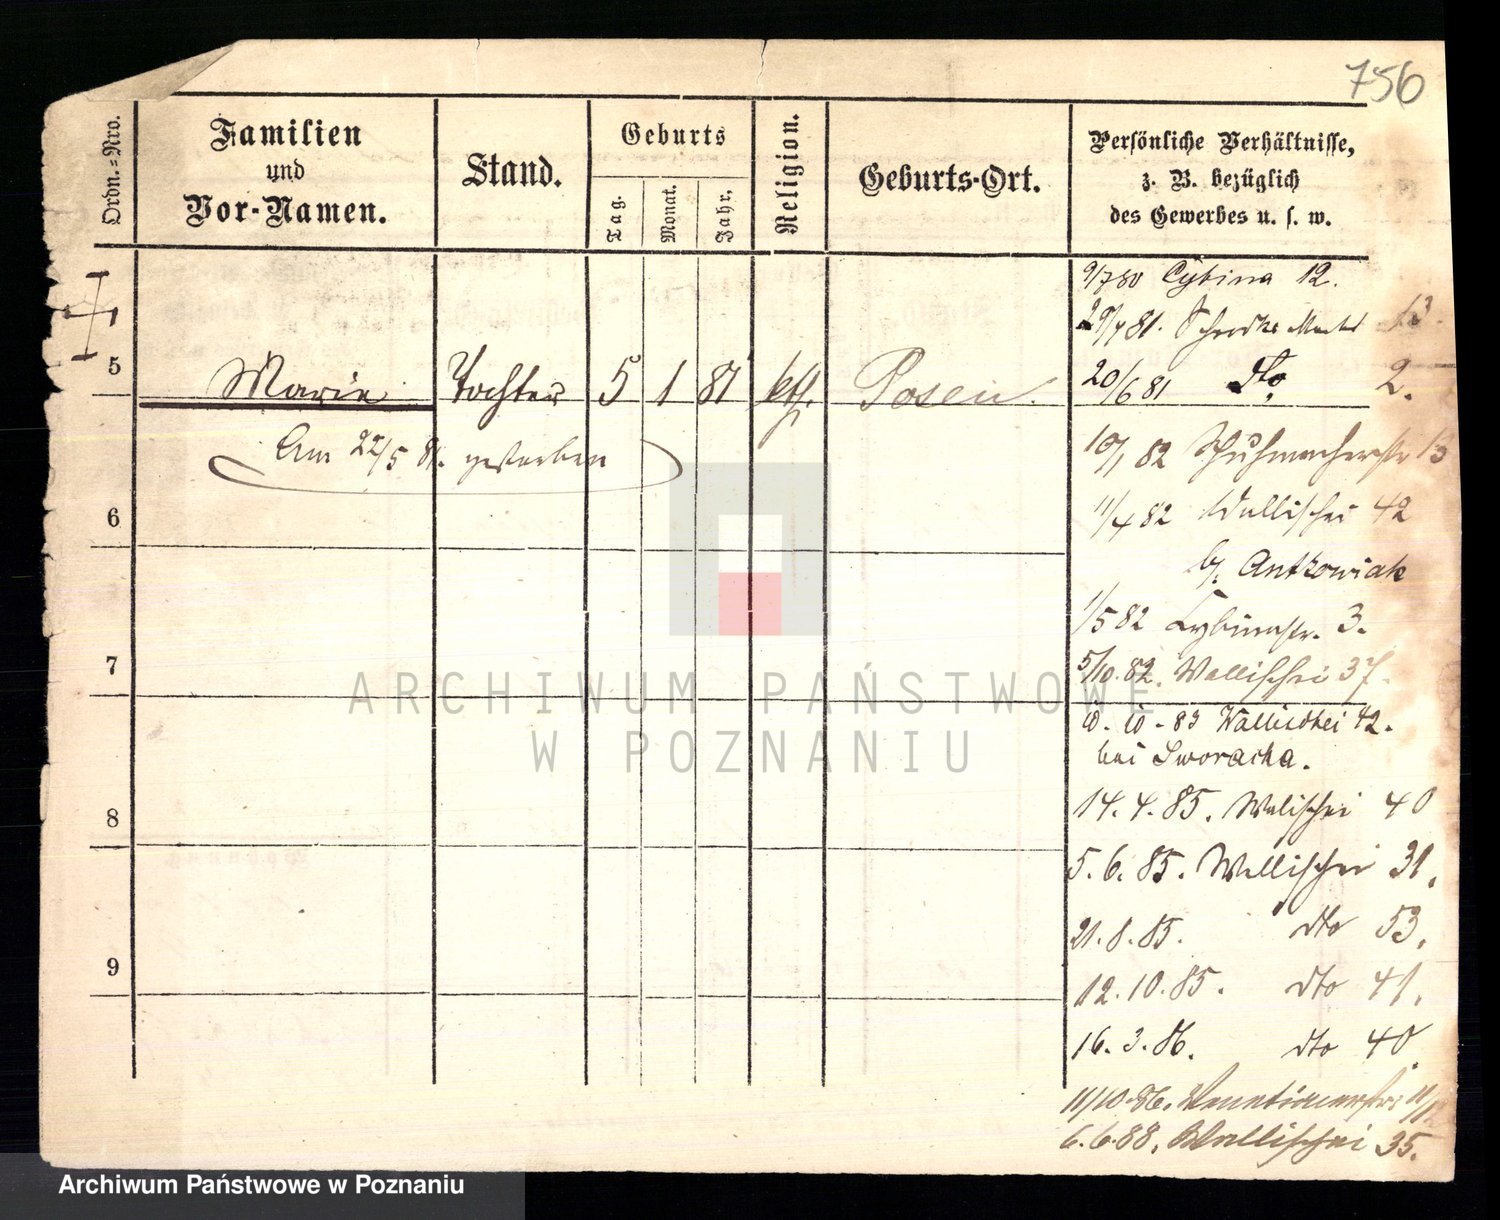 756
Ordn.=Nro.
Familien
und
Vor-Namen.
Stand.
Geburts
Tag.
Monat.
Jahr.
Religion.
Geburts-Ort.
Persönliche Verhältnisse,
z. B. bezüglich
des Gewerbes u. s. w.
9/7 80 Cybina 12.
29/4 81. Schrodka Markt 13.
5 Marie Tochter 5 1 81 kth. Posen.
20/6 81 dto 2.
Am 22/5 81. gestorben
10/1 82 Schuhmacherstr 13
6
11/4 82 Wallischei 42
b. Antkowiak
1/5 82 Cybinastr. 3.
7
5/10.82. Wallischei 37.
10.-10-83 Wallischei 42.
bei Sworacka.
14.4.85. Walischei 40
8
5.6.85. Wallischei 31.
21.8.85. dto 53.
9
12.10.85. dto 41.
16.3.86. dto 40
11/10.86. Venetianerstr. 11/12
6.6.88. Wallischei 35.
ARCHIWUM PAŃSTWOWE
W POZNANIU
Archiwum Państwowe w Poznaniu